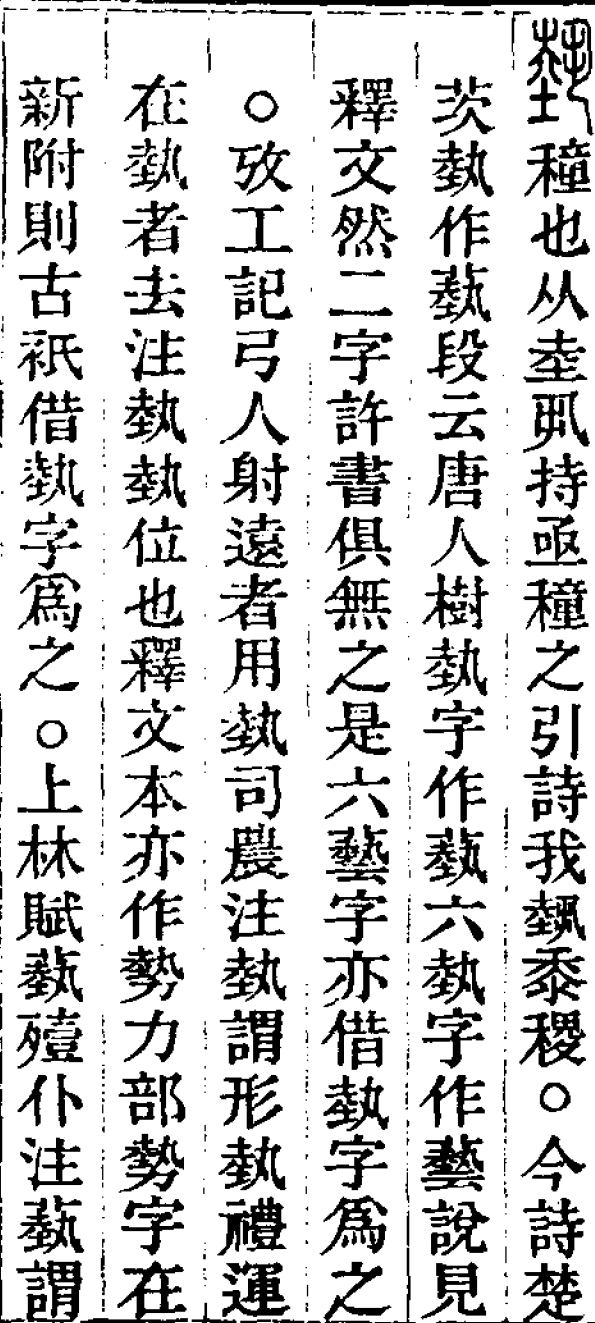 𡎐穜也从坴丮持亟穜之引詩我𡎐黍稷○今詩楚
茨埶作蓺段云唐人樹埶字作蓺六埶字作藝說見
釋文然二字許書俱無之是六藝字亦借埶字爲之
○攷工記弓人射遠者用埶司農注埶謂形埶禮運
在埶者去注埶埶位也釋文本亦作勢力部勢字在
新附則古衹借埶字爲之○上林賦蓺殪仆注蓺謂